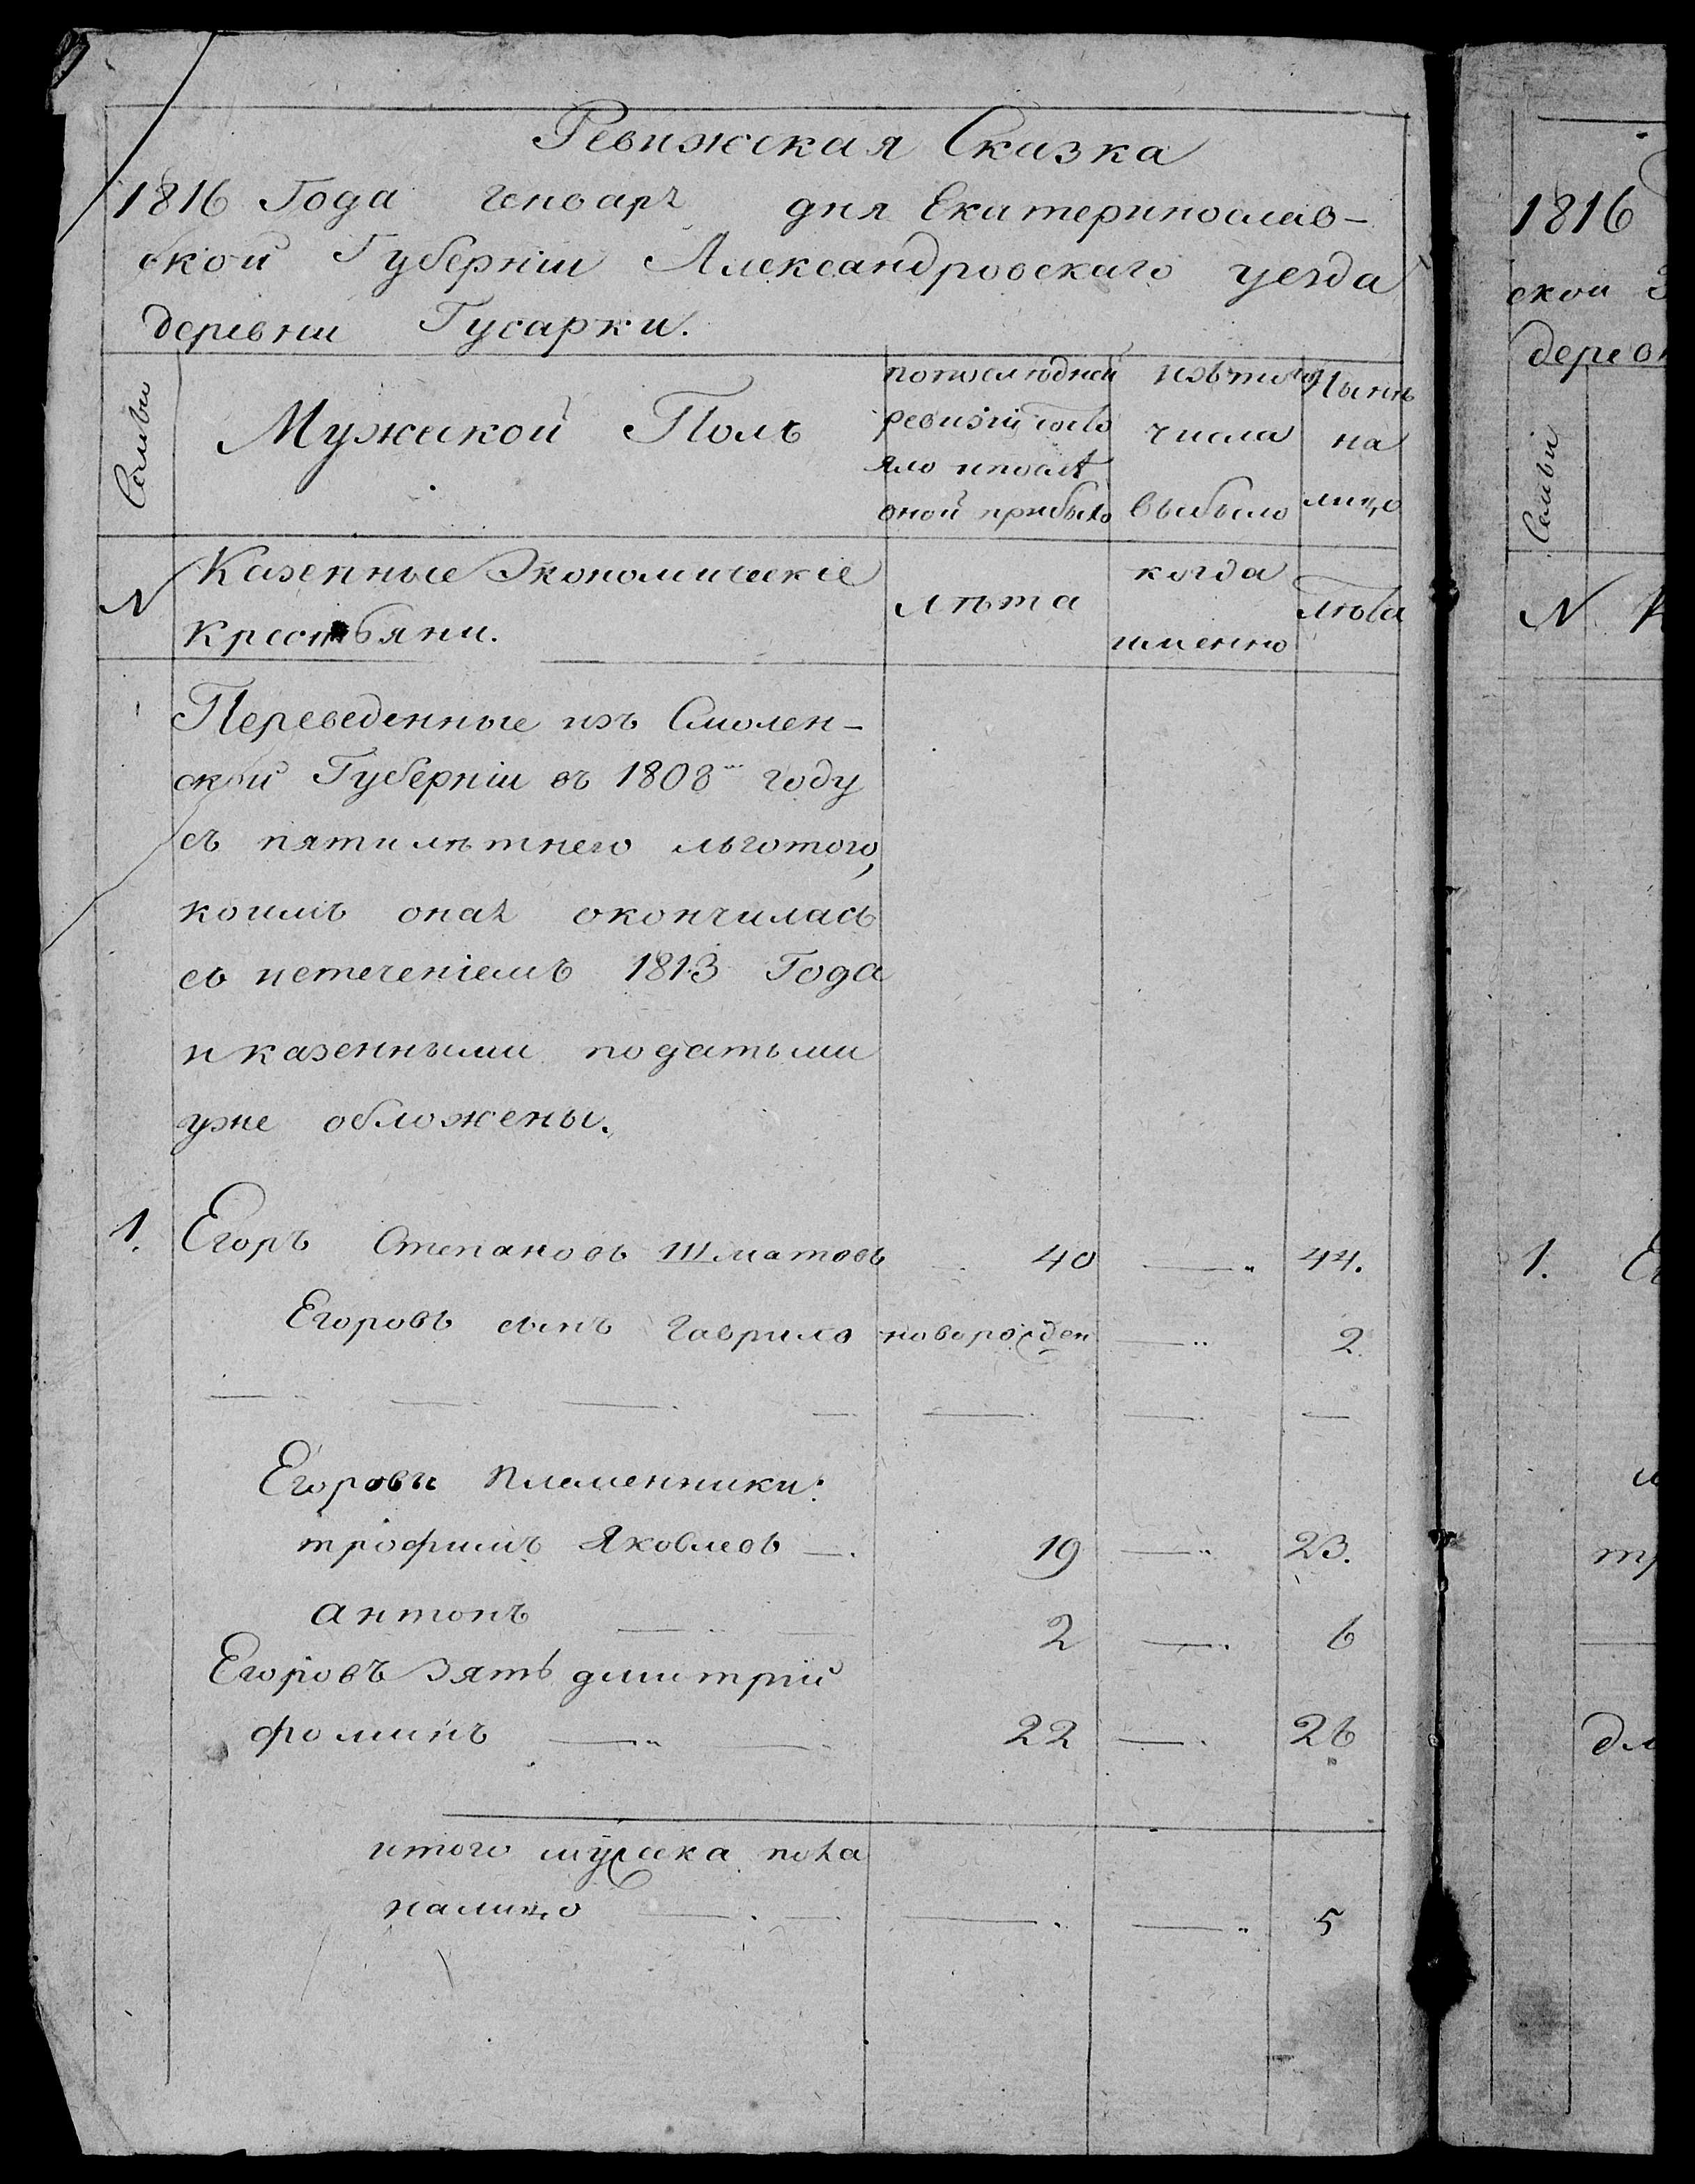 Ревижская Сказка
1816 Года Генваря дня Екатеринослав-
ской Губерніи Александровскаго уезда
деревни Гусарки.
Семьи
Мужской Полъ
попоследней
ревизіи состо
яло ипослѣ
оной прибыло
изътого
числа
выбыло
Нынѣ
на
лицо
N
Казенные Экономическіе
крестьяни.
лѣта
когда
именно
лѣта
Переведенные изъ Смолен-
ской Губерніи въ 1808 году
съ пятилѣтнего льготого,
коимъ оная окончилась
съ истеченіемъ 1813 Года
и казенными податьми
уже обложены.
1. Егоръ Степановъ Шматовъ 40 44.
Егоровъ сынъ Гаврило новорожден 2
Егоровы племенники:
трофимъ Яковлевъ 19 23.
антонъ 2 6
Егоровъ зять дмитрій
фоминъ 22 26
итого мужска пола
налицо 5
1816
ской
дерев
Семьи
N К
1. Ег
тр
дм